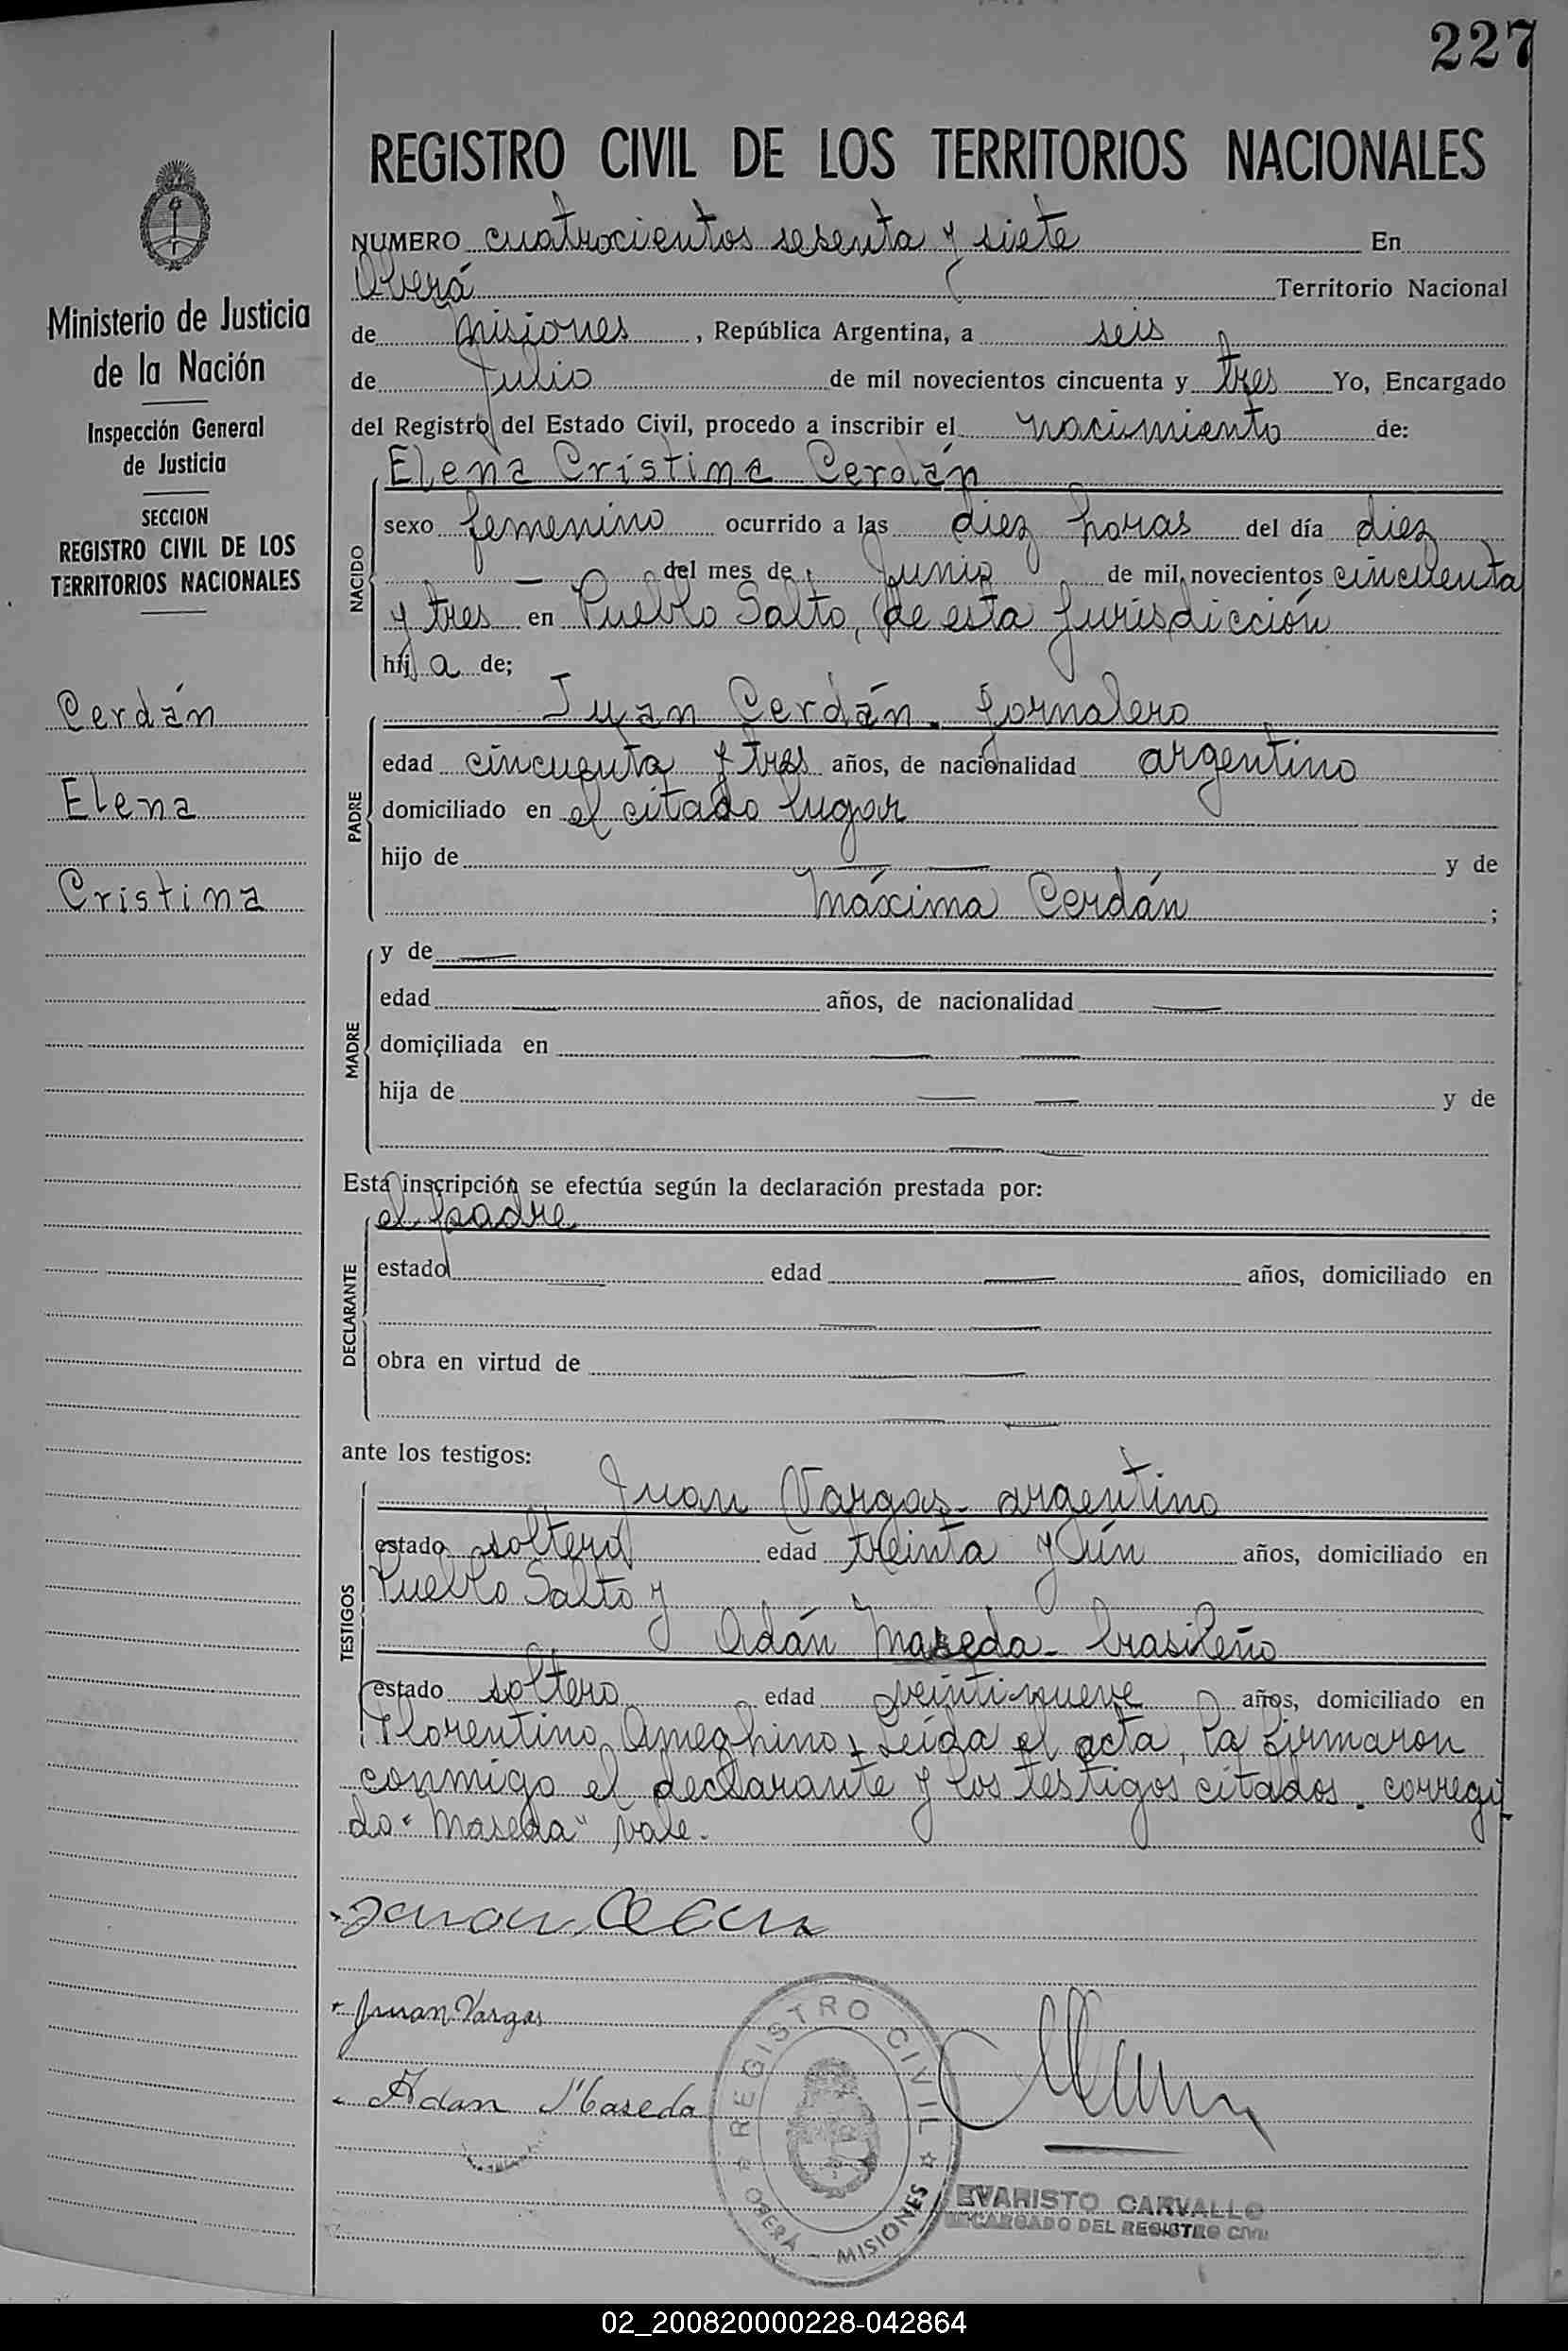 227
REGISTRO CIVIL DE LOS TERRITORIOS NACIONALES
Ministerio de Justicia
de la Nación
Inspección General
de Justicia
SECCION
REGISTRO CIVIL DE LOS
TERRITORIOS NACIONALES
Cerdán
Elena
Cristina
NUMERO cuatrocientos sesenta y siete En
Oberá Territorio Nacional
de Misiones, República Argentina, a seis
de Julio de mil novecientos cincuenta y tres Yo, Encargado
del Registro del Estado Civil, procedo a inscribir el nacimiento de:
Elena Cristina Cerdán
NACIDO
sexo femenino ocurrido a las diez horas del día diez
— del mes de Junio de mil novecientos cincuenta
y tres en Pueblo Salto, de esta Jurisdicción
hija de;
PADRE
Juan Cerdán. Jornalero
edad cincuenta y tres años, de nacionalidad argentino
domiciliado en el citado lugar
hijo de — — y de
Máxima Cerdán ;
MADRE
y de —
edad — años, de nacionalidad —
domiciliada en — —
hija de — — y de
— —
Esta inscripción se efectúa según la declaración prestada por:
DECLARANTE
el padre
estado — edad — años, domiciliado en
— —
obra en virtud de — —
— —
ante los testigos:
TESTIGOS
Juan Vargas - argentino
estado soltero edad treinta y ún años, domiciliado en
Pueblo Salto y
Adán Maseda - brasileño
estado soltero edad veintinueve años, domiciliado en
Florentino Ameghino. Leída el acta, la firmaron
conmigo el declarante y los testigos citados. corregi-
do "Maseda" vale.
Juan Vargas
Adan Maseda
REGISTRO CIVIL
OBERÁ - MISIONES
EVARISTO CARVALLO
ENCARGADO DEL REGISTRO CIVIL
02_200820000228-042864